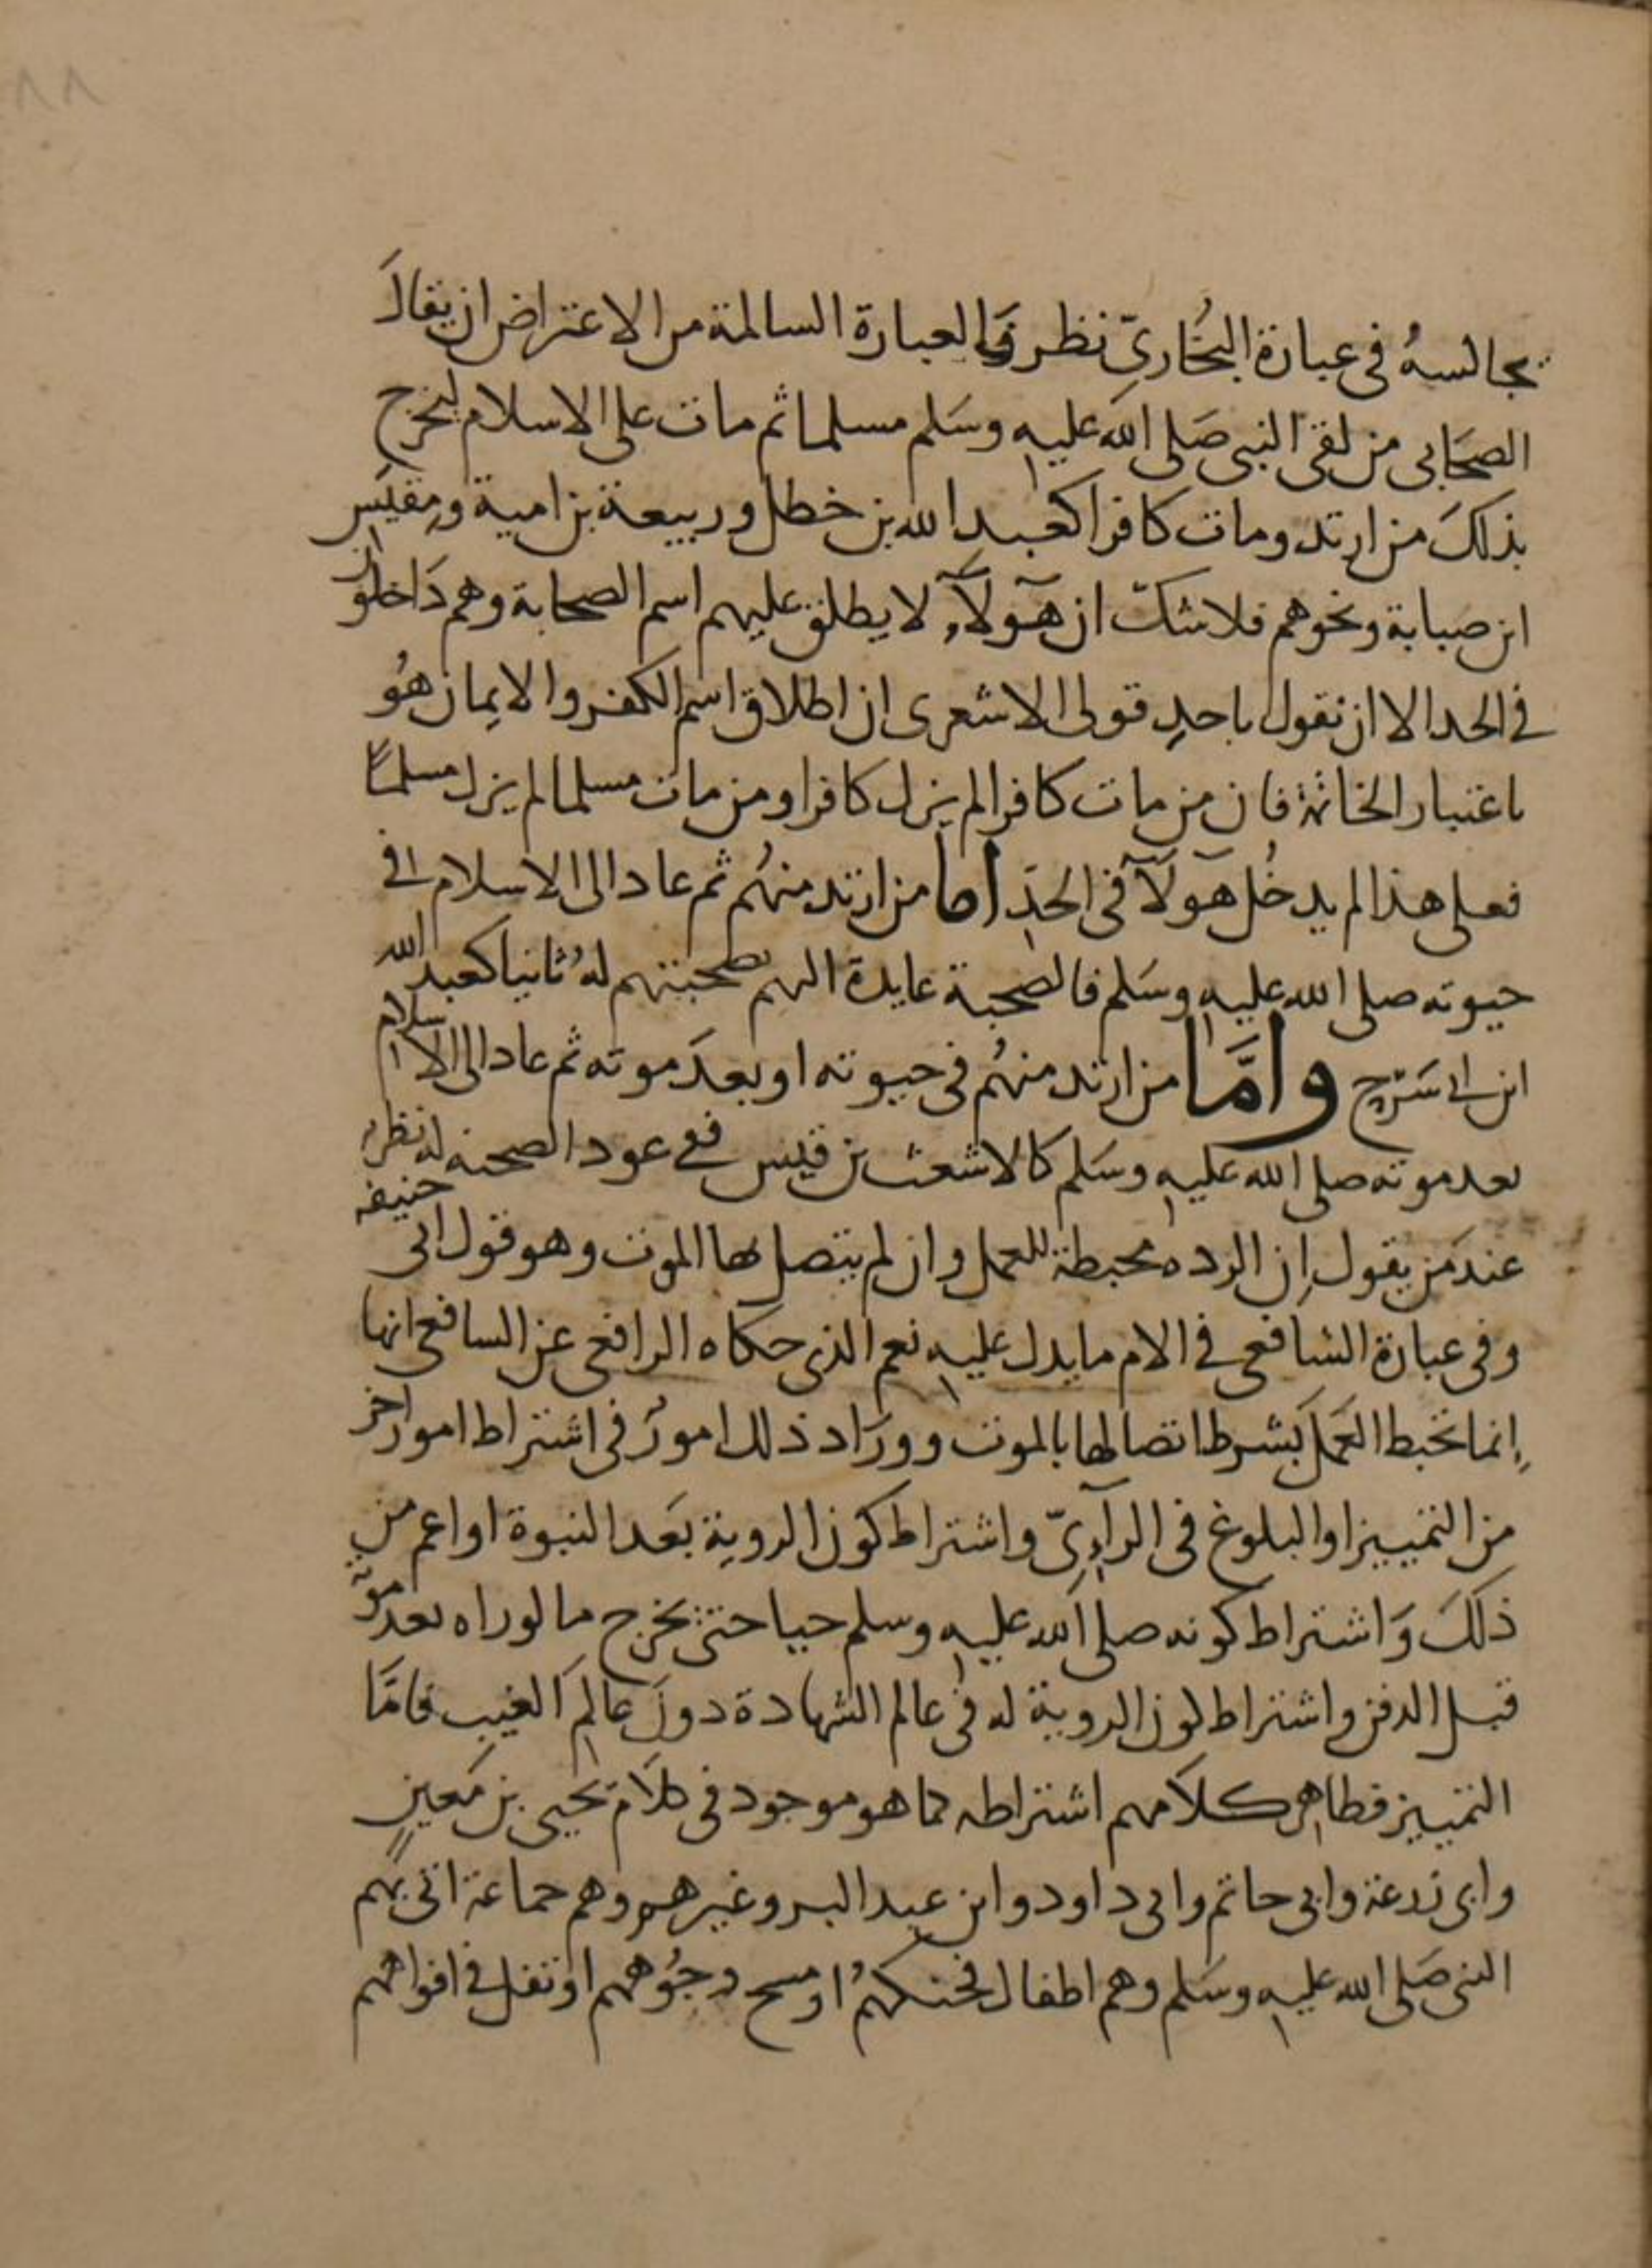 ٨٨
يجالسهُ في عبارة البُخاريّ نظر فالعبارة السالمة من الاعتراض ان يقالَ
الصحَابي من لقي النبي صَلى الله عليه وسَلم مسلما ثم مات على الاسلام ليخرج
بذلكَ من ارتد ومات كافرا كعبد الله بن خطل وربيعة بن امية ومِقيَس
ابن صبابة ونحوهم فلا شكّ ان هؤلآء لا يطلق عليهم اسم الصحابة وهم دَاخلون
في الحد الا ان نقول باحدِ قولى الاشعرى ان اطلاق اسم الكفر والايمان هُو
باعتبار الخاتمة فان من مات كافرا لم يزل كافرا ومن مات مسلما لم يزل مسلماً
فعلى هذا لم يدخُل هَولآ في الحدِّ أما من ارتد منهُم ثم عاد الى الاسلام في
حيوته صلى الله عليه وسَلم فالصحبة عايدة اليهم بصحبتهم لهُ ثانيا كعبد الله
ابن ابي سَرْح وامَّا من ارتد منهُم في حيوته او بعدَ موته ثم عاد الى الاسلام
بعد موته صلى الله عليه وسَلم كالاشعث بن قيس ففي عود الصحبة له نظر
عندَ من يقول اِن الرده محبطة للعمل وان لم يتصل بها الموت وهو قول ابي حنيفه
وفي عبارة الشافعي في الام ما يدل عليه نعم الذي حكاه الرافعي عن الشافعي انها
اِنما تحبط العَمل بشرط اتصالها بالموت وورَاد ذلك امورٌ في اشتراط امور اخر
من التمييز او البلوغ في الرآءِيّ واشتراط كون الروية بَعد النبوة او اعم من
ذلكَ وَاشتراط كونه صلى الله عليه وسلم حيا حتى يَخرج ما لو راه بعد موته
قبل الدفن واشتراط كون الروية له في عالم الشهادة دونَ عالَم الغيب فامَّا
التمييز فظاهر كلامهم اشتراطه كما هو موجود في كلام يَحيى بن مَعينٍ
وابي زرعة وابي حاتم وابي داود وابن عبد البر وغيرهم وهم جماعة اتى بهم
النبي صَلى الله عليه وسَلم وهم اطفال فحنكهمُ او مسح وجُوههم او تفل في افواههم